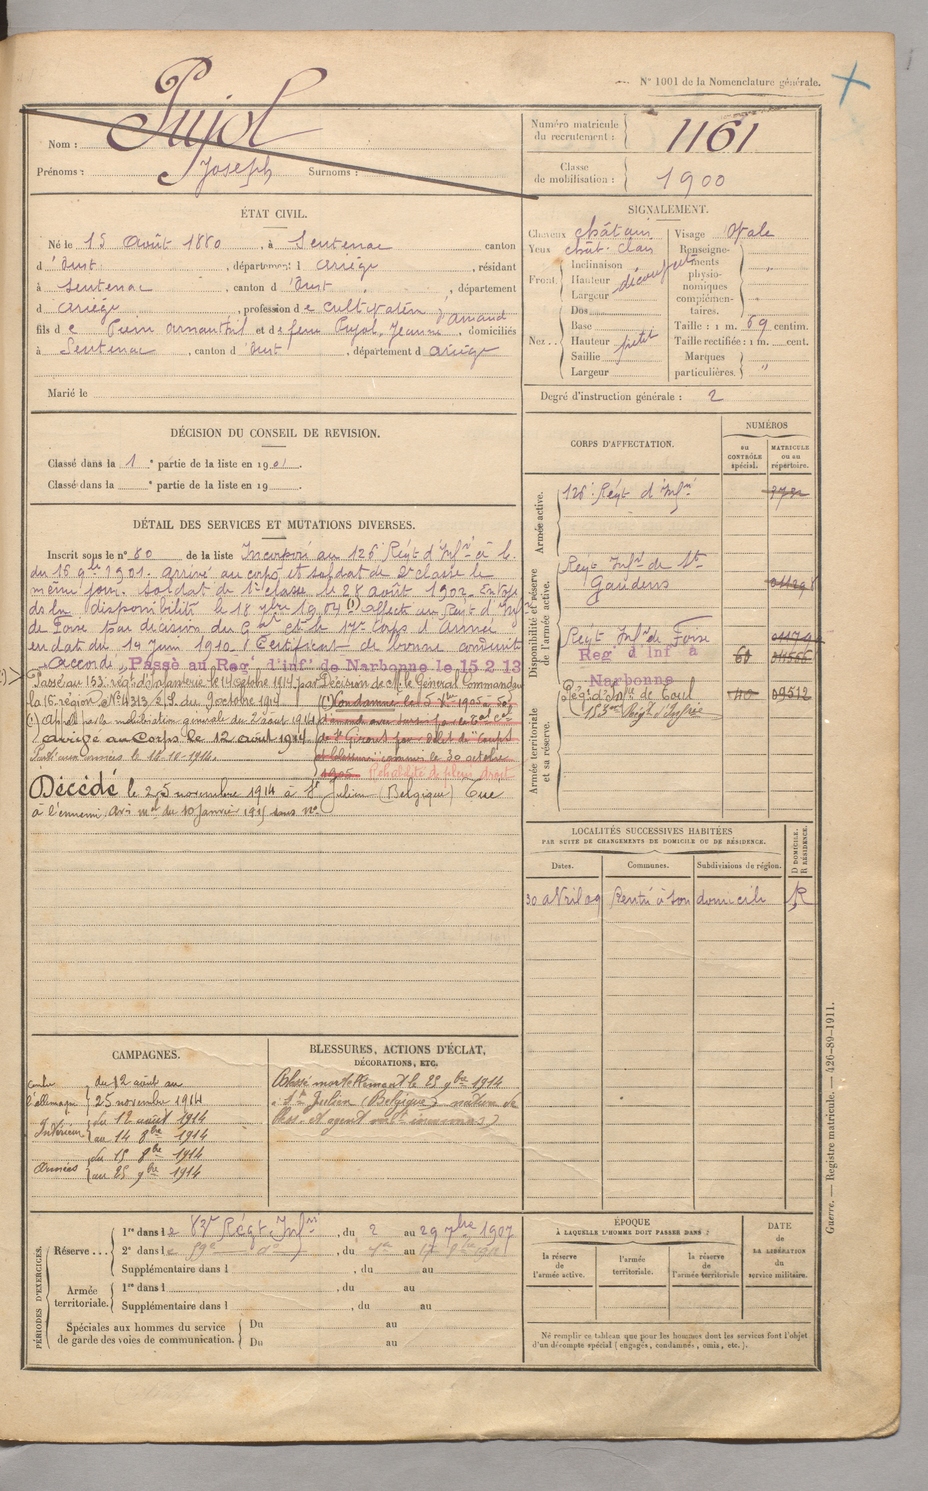 N° 1001 de la Nomenclature générale.
Nom : Pujol
Prénoms : Joseph Surnoms :
Numéro matricule du recrutement : 1161
Classe de mobilisation : 1900
ÉTAT CIVIL.
Né le 15 Août 1880, à Sentenac canton
d'Oust, département d Ariège, résidant
à Sentenac, canton d'Oust, département
d Ariège, profession de cultivateur
fils de Pierre Armand et de feue Pujol, Jeanne, domiciliés
à Sentenac, canton d'Oust, département d Ariège
Marié le
SIGNALEMENT.
Cheveux châtain Visage Ovale
Yeux chât. clair Renseignements physionomiques complémentaires. "
Front Inclinaison
Hauteur découvert
Largeur
Nez Dos
Base
Hauteur petit
Saillie
Largeur
Taille : 1 m. 69 centim.
Taille rectifiée : 1 m. cent.
Marques particulières. "
Degré d'instruction générale : 2
DÉCISION DU CONSEIL DE REVISION.
Classé dans la 1e partie de la liste en 1901.
Classé dans la e partie de la liste en 19
DÉTAIL DES SERVICES ET MUTATIONS DIVERSES.
Inscrit sous le n° 80 de la liste Incorporé au 126e Régt d'Infie à c.
du 16 9bre 1901. arrivé au corps et soldat de 2e classe le
même jour. Soldat de 1e classe le 28 août 1902. Envoyé
dans la disponibilité le 18 7bre 1904 (1) affecté au Régt d'Infie
de Foix par décision du Gal Ct le 17e Corps d'Armée
en date du 14 Juin 1910. Certificat de bonne conduite
accordé. Passé au Reg. d'inf. de Narbonne le 15 2 13
Passé au 153e régt d'Infanterie le 14 octobre 1914 par Décision de M. le Général Commandant
la 16e région N° 4313 2/S. du 9 octobre 1914
Appelé par la mobilisation générale du 2 août 1914
arrivé au Corps le 12 août 1914
(1) Condamné le 5 Xbre 1905 à 50f
d'amende avec sursis par le Bal Cel
de St Girons pour délit de "Coups
et blessures" commis le 30 octobre
1905 Réhabilité de plein droit
Décédé le 25 novembre 1914 à St Julien (Belgique) Tué
à l'ennemi. Avis mel du 10 Janvier 1915 sans no
CORPS D'AFFECTATION.
NUMÉROS
au CONTRÔLE spécial.
MATRICULE ou au répertoire.
Armée active.
126e Régt d'Infie
Disponibilité et réserve de l'armée active.
Régt Infie de St
Gaudens
Régt Infie de Foix
Reg' d'inf à 60
Narbonne
Armée territoriale et sa réserve.
Régt d'Infie de Toul 09512
153me Régt d'Infrie
LOCALITÉS SUCCESSIVES HABITÉES
PAR SUITE DE CHANGEMENTS DE DOMICILE OU DE RÉSIDENCE.
Dates. Communes. Subdivisions de région. D DOMICILE. R RÉSIDENCE.
30 avril 09 Rentré à son domicile R
CAMPAGNES.
Contre l'allemagne du 12 août au
25 novembre 1914
Intérieur du 12 août 1914
au 14 8bre 1914
Armées du 15 8bre 1914
au 25 9bre 1914
BLESSURES, ACTIONS D'ÉCLAT,
DÉCORATIONS, ETC.
Blessé mortellement le 25 9bre 1914
à St Julien (Belgique) nature de
bles. et agent vulnt inconnus)
PÉRIODES D'EXERCICES.
Réserve 1re dans le 83e Régt Infie, du 2 au 29 7bre 1907
2e dans le 59e do, du
Supplémentaire dans l , du au
Armée territoriale. 1re dans l , du au
Supplémentaire dans l , du au
Spéciales aux hommes du service
de garde des voies de communication. Du au
Du au
ÉPOQUE
À LAQUELLE L'HOMME DOIT PASSER DANS :
la réserve de l'armée active.
l'armée territoriale.
la réserve de l'armée territoriale
DATE
de
LA LIBÉRATION
du
service militaire.
Ne remplir ce tableau que pour les hommes dont les services font l'objet
d'un décompte spécial (engagés, condamnés, omis, etc.).
Guerre. — Registre matricule. — 426-89-1911.